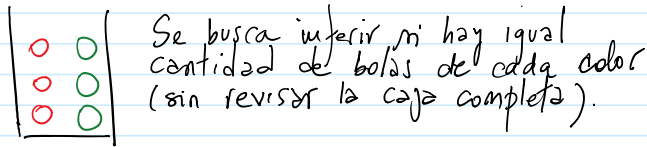 Se busca inferir si hay igual
cantidad de bolas de cada color
(sin revisar la caja completa).